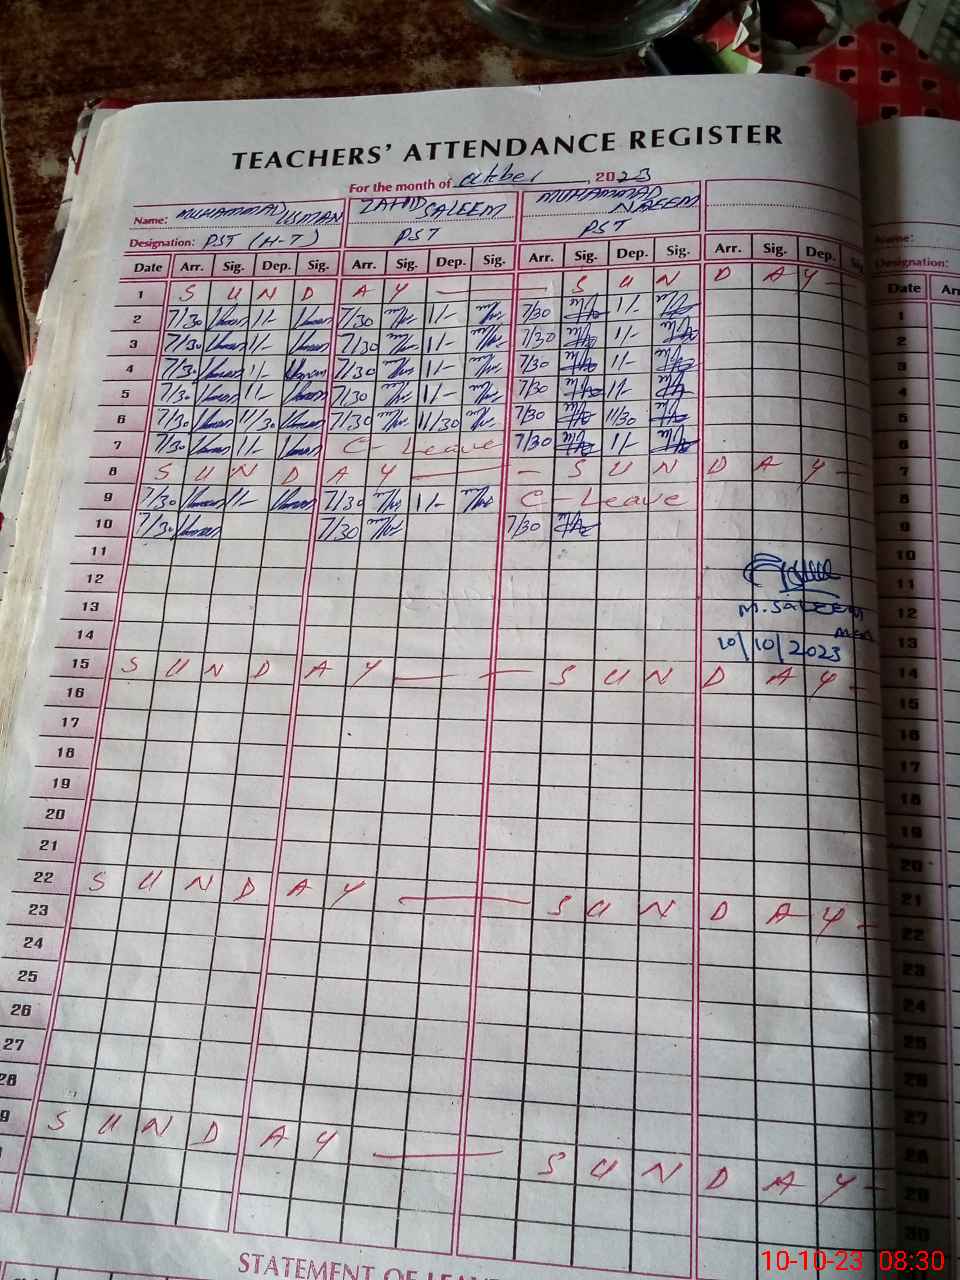 TEACHERS' ATTENDANCE REGISTER
For the month of October, 2023
Name: MUHAMMAD USMAN ZAHID SALEEM MUHAMMAD NAEEM
Designation: PST (H-T) PST PST
Date Arr. Sig. Dep. Sig. Arr. Sig. Dep. Sig. Arr. Sig. Dep. Sig. Arr. Sig. Dep. Sig.
1 S U N D A Y — — S U N D A Y —
2 7/30 1/- 7/30 1/- 7/30 1/-
3 7/30 1/- 7/30 1/- 7/30 1/-
4 7/30 1/- 7/30 1/- 7/30 1/-
5 7/30 1/- 7/30 1/- 7/30 1/-
6 7/30 11/30 7/30 11/30 7/30 11/30
7 7/30 1/- C-Leave 7/30 1/-
8 S U N D A Y — — S U N D A Y —
9 7/30 1/- 7/30 1/- C-Leave
10 7/30 7/30 7/30
11
12
M. SALEEM
13
14
10/10/2023
15 S U N D A Y — — S U N D A Y —
16
17
18
19
20
21
22 S U N D A Y — S U N D A Y —
23
24
25
26
27
28
9 S U N D A Y — S U N D A Y —
STATEMENT OF LEAV
Name:
Designation:
Date Arr
1
2
3
4
5
6
7
8
9
10
11
12
13
14
15
16
17
18
19
20
21
22
23
24
25
26
27
28
29
30
10-10-23 08:30